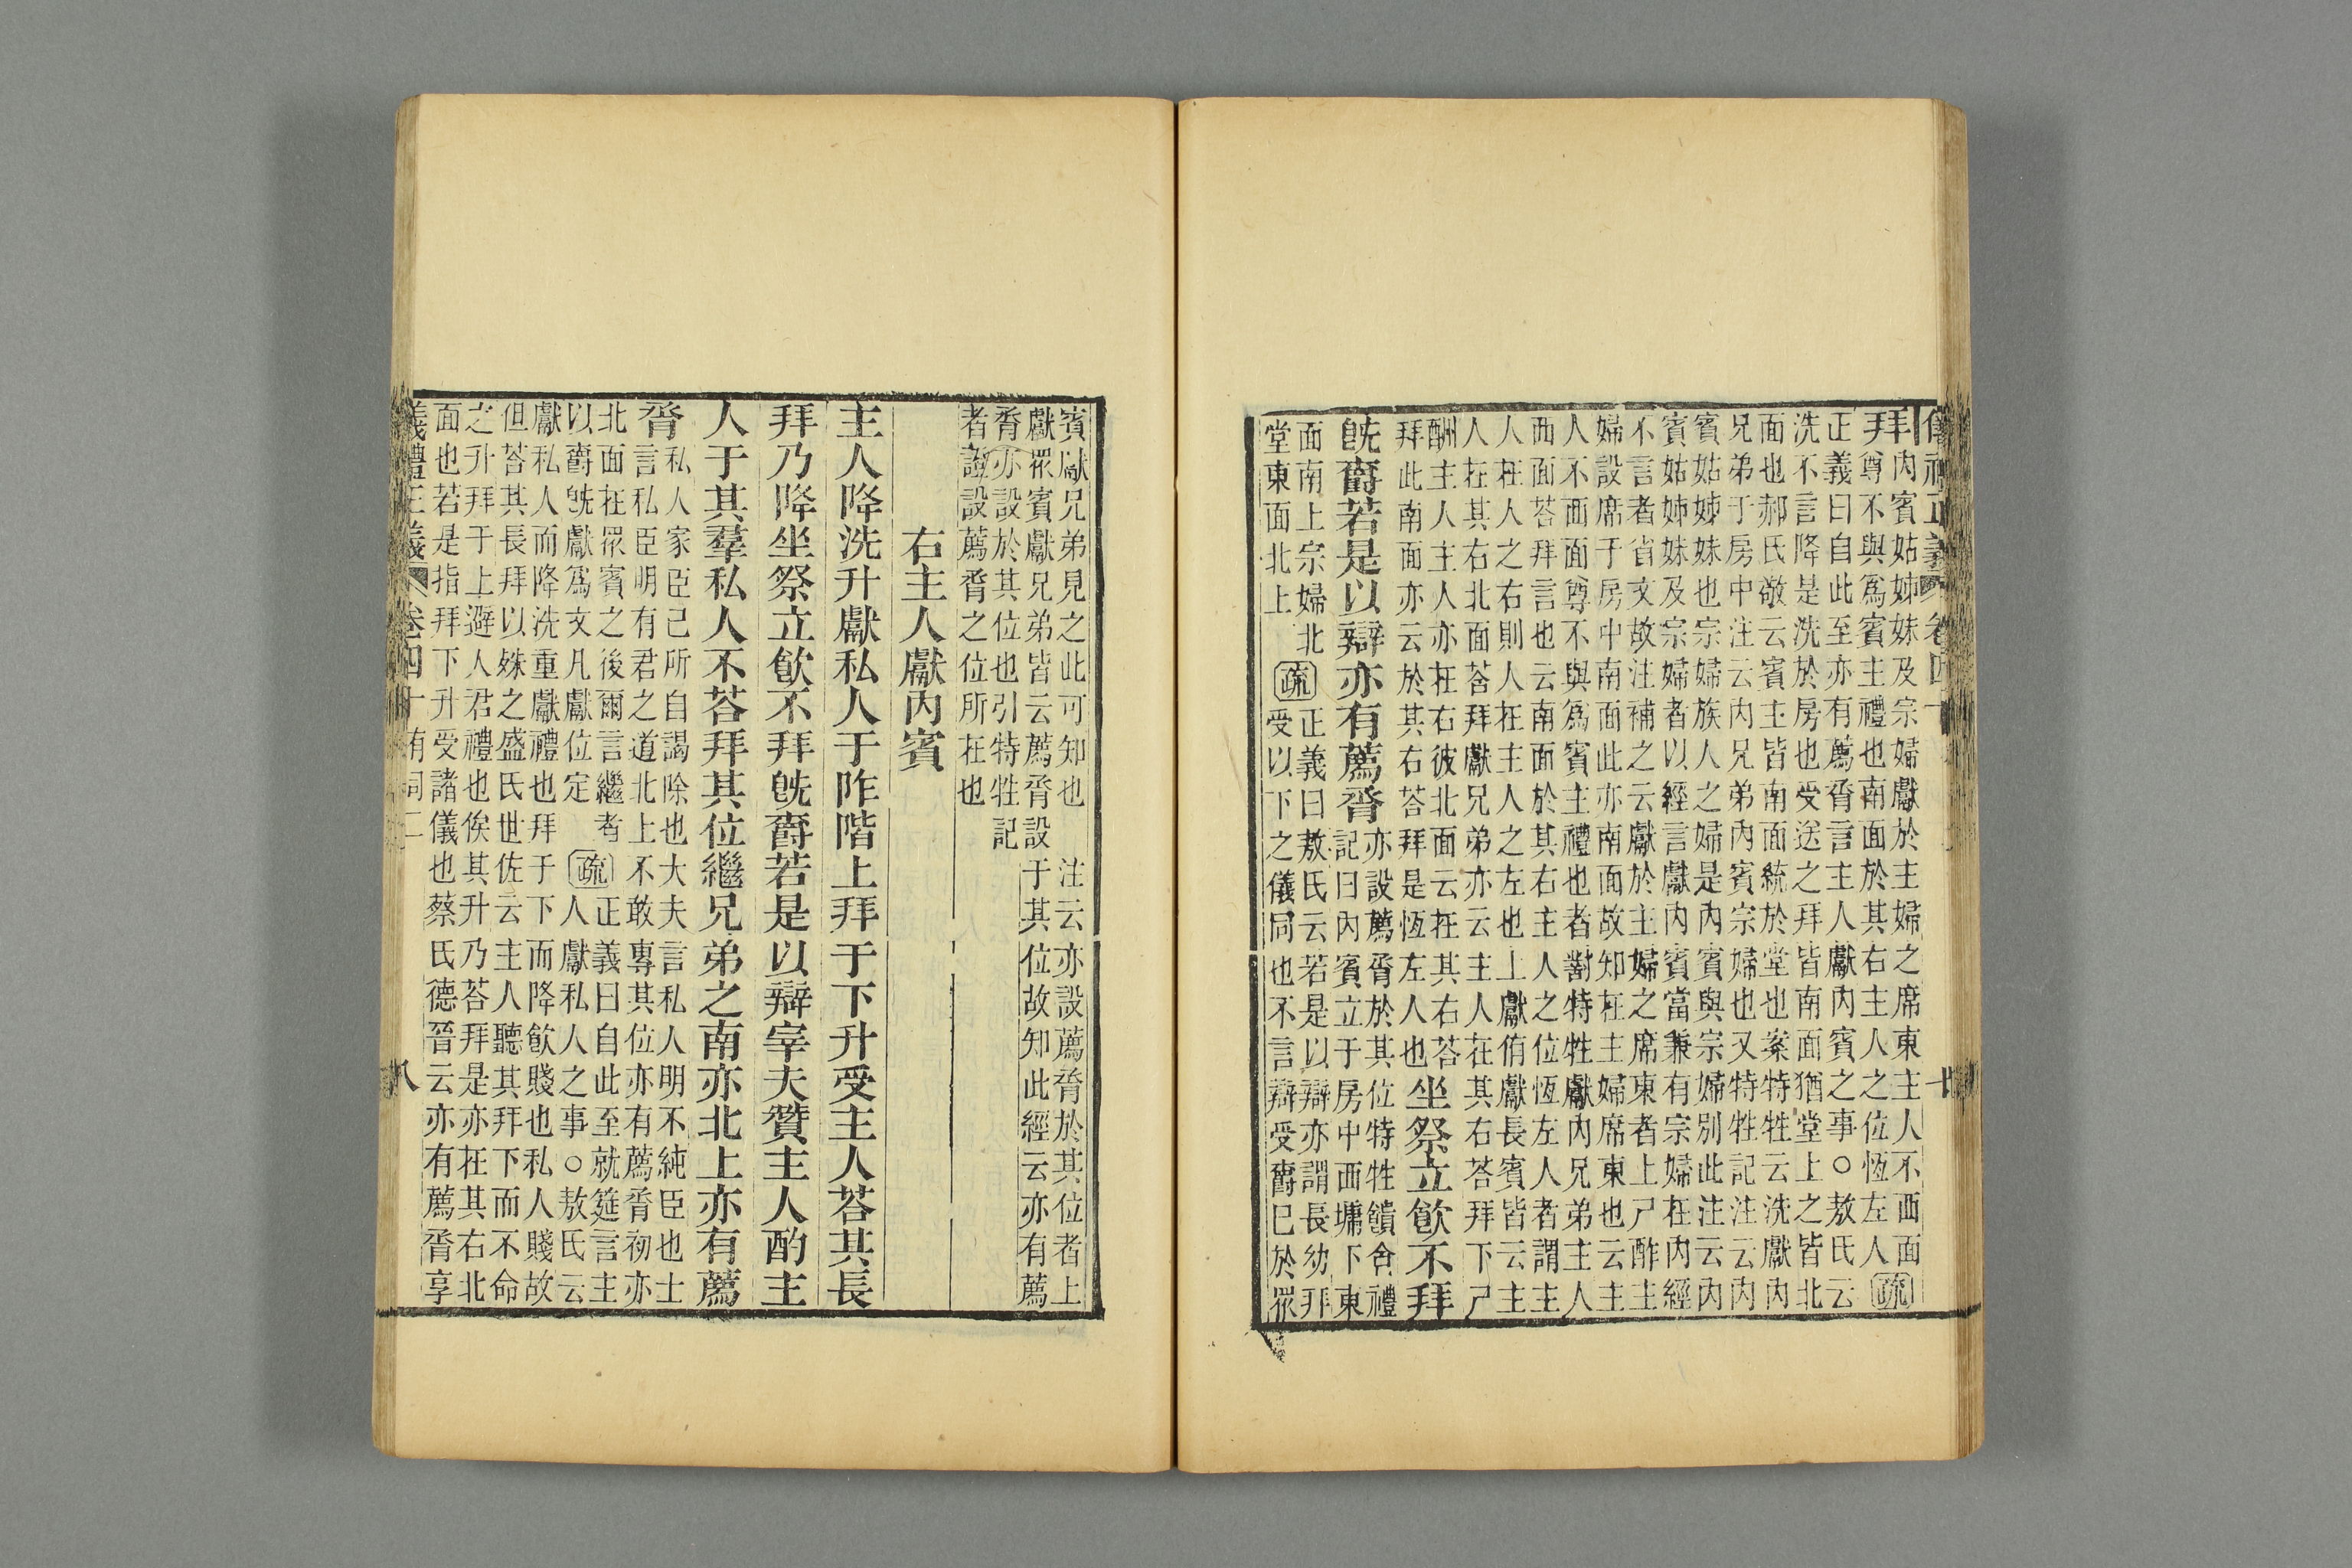 儀禮正義 卷四十
拜
內賓姑姊妹及宗婦獻於主婦之席東主人不西面
尊不與爲賓主禮也南面於其右主人之位恆左人 疏
正義曰自此至亦有薦脀言主人獻內賓之事○敖氏云
洗不言降是洗於房也受送之拜皆南面猶堂上之皆北
面也郝氏敬云賓主皆南面統於堂也案特牲云洗獻內
兄弟于房中注云內兄弟內賓宗婦也又特牲記注云內
賓姑姊妹也宗婦族人之婦是內賓與宗婦別此注云內
賓姑姊妹及宗婦者以經言獻內賓當兼有宗婦在內經
不言者省文故注補之云獻於主婦之席東者上尸酢主
婦設席于房中南面此亦南面故知在主婦席東也云主
人不西面尊不與爲賓主禮也者對特牲獻內兄弟主人
西面荅拜言也云南面於其右主人之位恆左人者謂主
人在人之右則人在主人之左也上獻侑獻長賓皆云主
人在其右北面荅拜獻兄弟亦云主人在其右荅拜下尸
酬主人主人亦在右彼北面云在其右荅
拜此南面亦云於其右荅拜是恆左人也
坐祭立飮不拜
旣爵若是以辯亦有薦脀
亦設薦脀於其位特牲饋食禮
記曰內賓立于房中西墉下東
面南上宗婦北
堂東面北上 疏
正義曰敖氏云若是以辯亦謂長幼拜
受以下之儀同也不言辯受爵已於眾
賓獻兄弟見之此可知也 注云亦設薦脀於其位者上
獻眾賓獻兄弟皆云薦脀設于其位故知此經云亦有薦
脀亦設於其位也引特牲記
者證設薦脀之位所在也
右主人獻內賓
主人降洗升獻私人于阼階上拜于下升受主人荅其長
拜乃降坐祭立飮不拜旣爵若是以辯宰夫贊主人酌主
人于其羣私人不荅拜其位繼兄弟之南亦北上亦有薦
脀
私人家臣己所自謁除也大夫言私人明不純臣也士
言私臣明有君之道北上不敢專其位亦有薦脀初亦
北面在眾賓之後爾言繼者
以爵旣獻爲文凡獻位定 疏
正義曰自此至就筵言主
人獻私人之事○敖氏云
獻私人而降洗重獻禮也拜于下而降飮賤也私人賤故
但荅其長拜以殊之盛氏世佐云主人聽其拜下而不命
之升拜于上避人君禮也俟其升乃荅拜是亦在其右北
面也若是指拜下升受諸儀也蔡氏德晉云亦有薦脀享
儀禮正義 卷四十 有司二 八